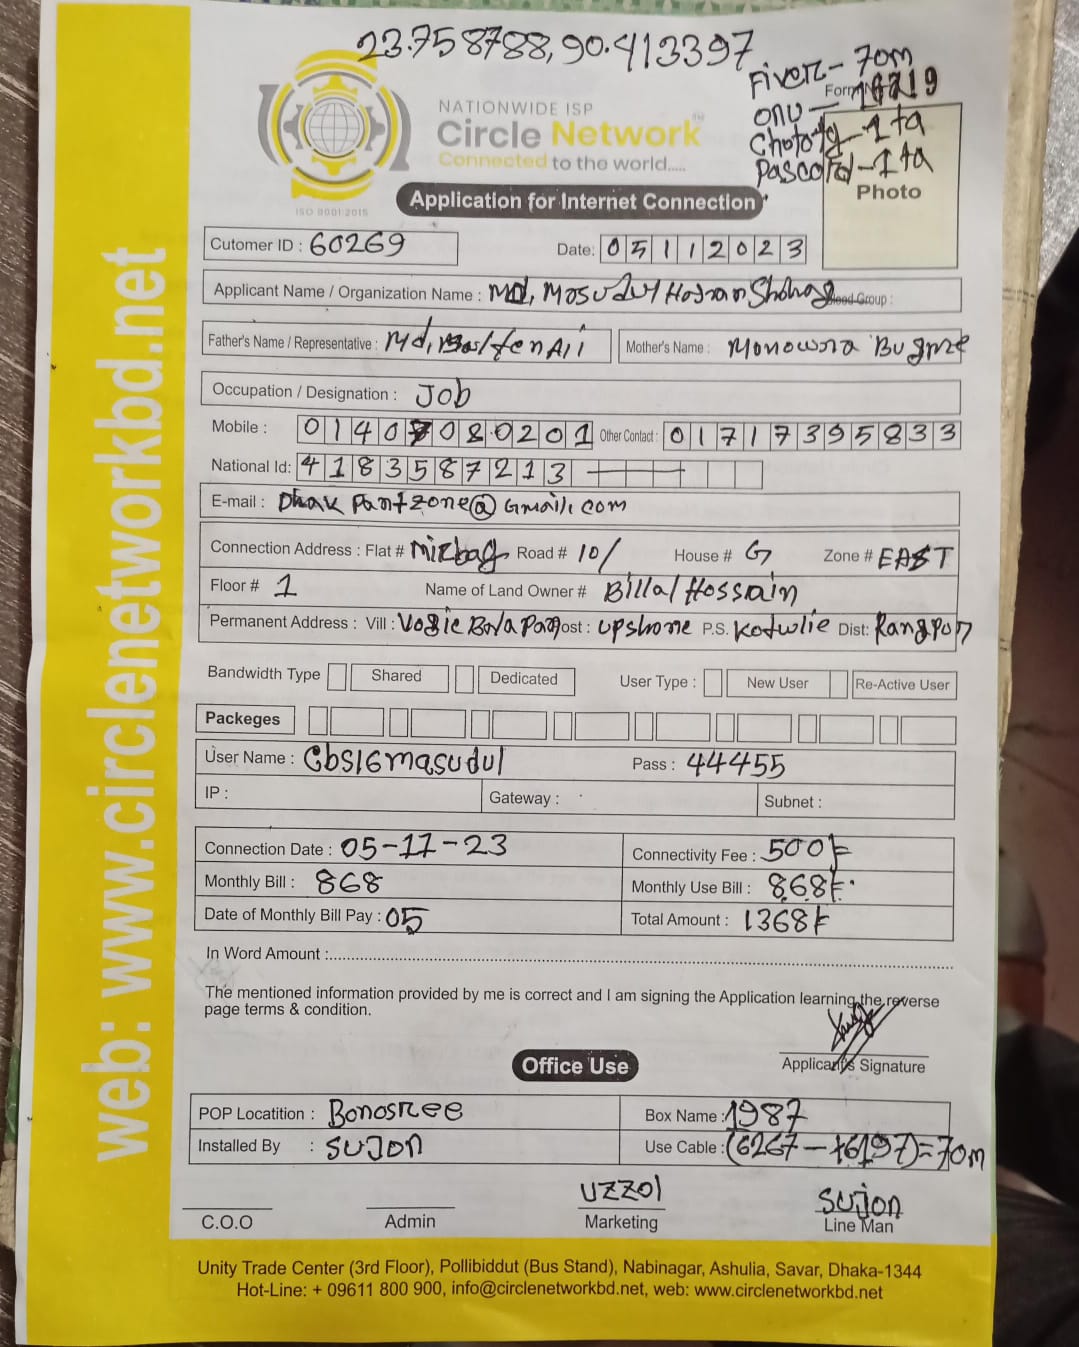 23.758788,90.413397
Fiver- 70m
Form
ONU - 1 ta
Choto Tg - 1 ta
Pascord - 1 ta
Photo
NATIONWIDE ISP
Circle Network
Connected to the world.....
ISO 9001:2015
Application for Internet Connection
Cutomer ID : 60269
Date: 05112023
Applicant Name / Organization Name : Md, Mosudul Hossan Shohag Blood Group :
Father's Name / Representative : Md, Ali
Mother's Name : Monowra Bugme
Occupation / Designation : Job
Mobile : 01407080201 Other Contact : 01717395833
National Id: 4183587213
E-mail : Dhak Pantzone@Gmail.com
Connection Address : Flat # Mirbag Road # 10/ House # G Zone # EAST
Floor # 1 Name of Land Owner # Billal Hossain
Permanent Address : Vill : Post : Upshore P.S. Kotwlie Dist: Rangpur
Bandwidth Type Shared Dedicated User Type : New User Re-Active User
Packeges
User Name : Cbs16masudul Pass : 44455
IP : Gateway : Subnet :
Connection Date : 05-11-23 Connectivity Fee : 500/-
Monthly Bill : 868 Monthly Use Bill : 868/-
Date of Monthly Bill Pay : 05 Total Amount : 1368/-
In Word Amount :
The mentioned information provided by me is correct and I am signing the Application learning the reverse
page terms & condition.
Applicant's Signature
Office Use
POP Locatition : Bonosree Box Name : 1987
Installed By : SUJON Use Cable : (6267-6197)=70m
UZZOl SUJON
C.O.O Admin Marketing Line Man
Unity Trade Center (3rd Floor), Pollibiddut (Bus Stand), Nabinagar, Ashulia, Savar, Dhaka-1344
Hot-Line: + 09611 800 900, info@circlenetworkbd.net, web: www.circlenetworkbd.net
web: www.circlenetworkbd.net